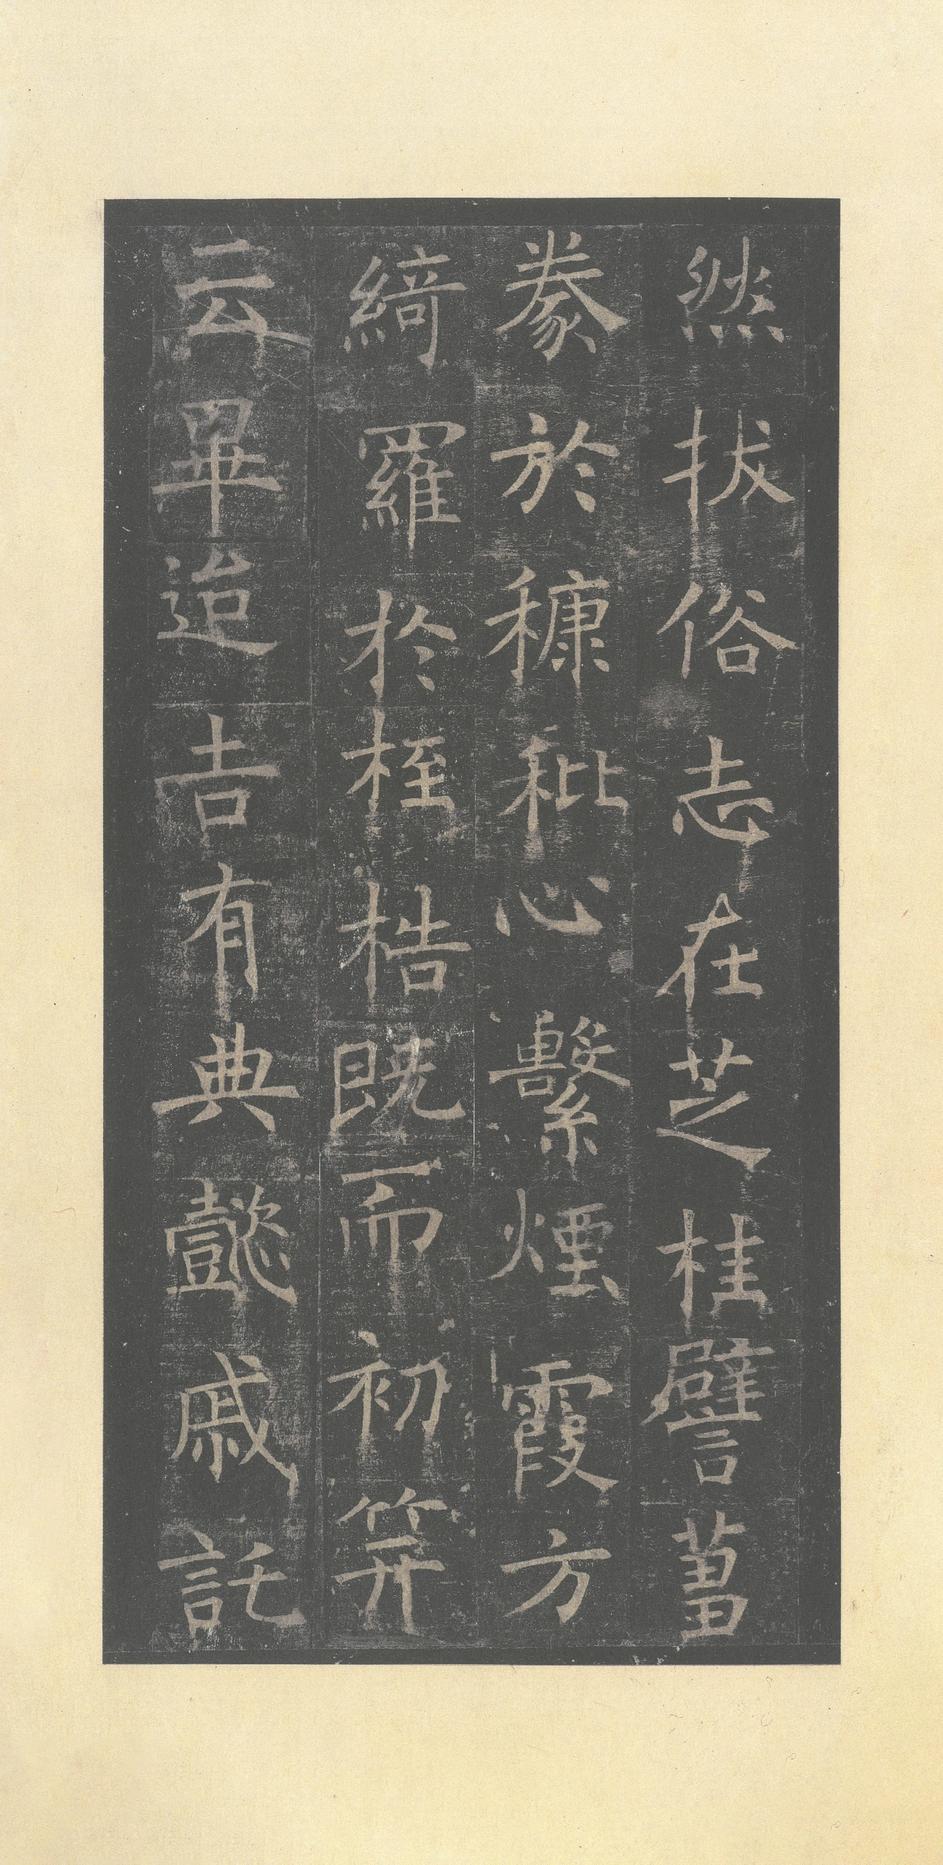 然拔俗志在芝桂譬蒭
豢於穅秕心繫煙霞方
綺羅於桎梏既而初笄
云畢迨吉有典懿戚託